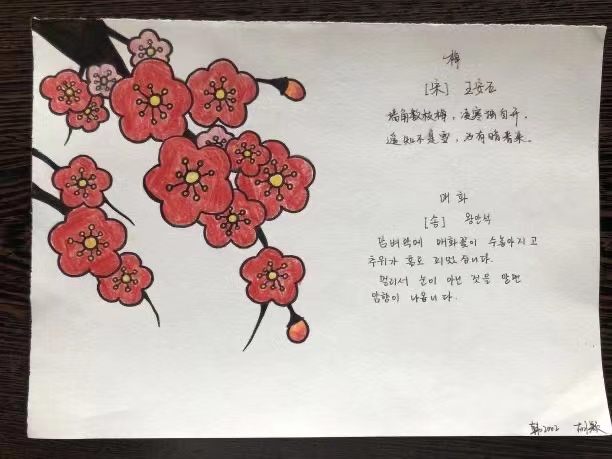 梅
[宋] 王安石
墙角数枝梅，凌寒独自开，
遥知不是雪，为有暗香来。
매화
[송] 왕안석
담벼락에 매화꽃이 수놓아지고
추위가 홀로 피었습니다.
멀리서 눈이 아닌 것을 알면
암향이 나옵니다.
韩2002